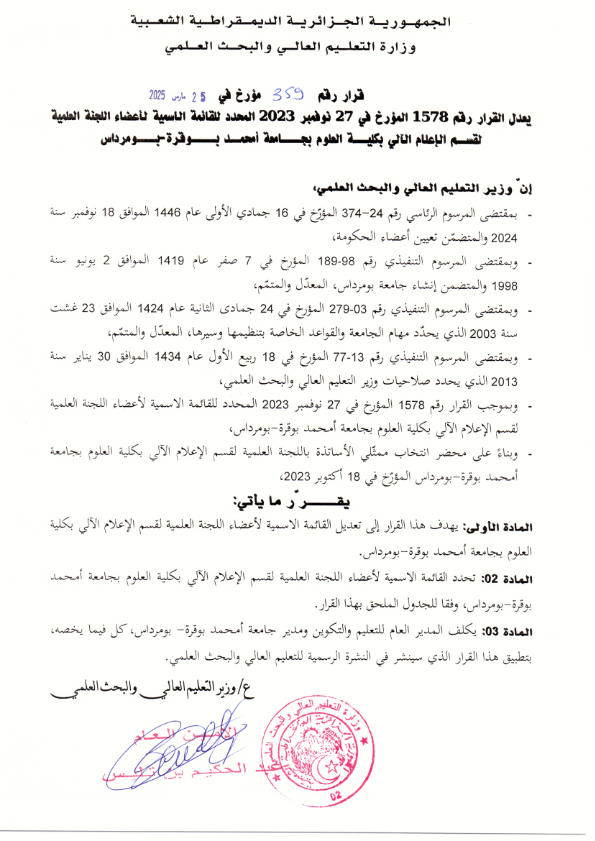 الجمهورية الجزائرية الديمقراطية الشعبية
وزارة التعليم العالي والبحث العلمي
قرار رقم 359 مؤرخ في 25 مارس 2025
يعدل القرار رقم 1578 المؤرخ في 27 نوفمبر 2023 المحدد للقائمة الاسمية لأعضاء اللجنة العلمية
لقسم الإعلام الآلي بكلية العلوم بجامعة أمحمد بوقرة-بومرداس
إنّ وزير التعليم العالي والبحث العلمي،
- بمقتضى المرسوم الرئاسي رقم 24-374 المؤرّخ في 16 جمادي الأولى عام 1446 الموافق 18 نوفمبر سنة
2024 والمتضمّن تعيين أعضاء الحكومة،
- وبمقتضى المرسوم التنفيذي رقم 98-189 المؤرخ في 7 صفر عام 1419 الموافق 2 يونيو سنة
1998 والمتضمن إنشاء جامعة بومرداس، المعدّل والمتمّم،
- وبمقتضى المرسوم التنفيذي رقم 03-279 المؤرخ في 24 جمادى الثانية عام 1424 الموافق 23 غشت
سنة 2003 الذي يحدّد مهام الجامعة والقواعد الخاصة بتنظيمها وسيرها، المعدّل والمتمّم،
- وبمقتضى المرسوم التنفيذي رقم 13-77 المؤرخ في 18 ربيع الأول عام 1434 الموافق 30 يناير سنة
2013 الذي يحدد صلاحيات وزير التعليم العالي والبحث العلمي،
- وبموجب القرار رقم 1578 المؤرخ في 27 نوفمبر 2023 المحدد للقائمة الاسمية لأعضاء اللجنة العلمية
لقسم الإعلام الآلي بكلية العلوم بجامعة أمحمد بوقرة-بومرداس،
- وبناءً على محضر انتخاب ممثّلي الأساتذة باللجنة العلمية لقسم الإعلام الآلي بكلية العلوم بجامعة
أمحمد بوقرة-بومرداس المؤرّخ في 18 أكتوبر 2023،
يقرّر ما يأتي:
المادة الأولى: يهدف هذا القرار إلى تعديل القائمة الاسمية لأعضاء اللجنة العلمية لقسم الإعلام الآلي بكلية
العلوم بجامعة أمحمد بوقرة-بومرداس.
المادة 02: تحدد القائمة الاسمية لأعضاء اللجنة العلمية لقسم الإعلام الآلي بكلية العلوم بجامعة أمحمد
بوقرة-بومرداس، وفقا للجدول الملحق بهذا القرار.
المادة 03: يكلف المدير العام للتعليم والتكوين ومدير جامعة أمحمد بوقرة- بومرداس، كل فيما يخصه،
بتطبيق هذا القرار الذي سينشر في النشرة الرسمية للتعليم العالي والبحث العلمي.
ع/ وزير التعليم العالي والبحث العلمي
الأمين العام
وزارة التعليم العالي والبحث العلمي
02